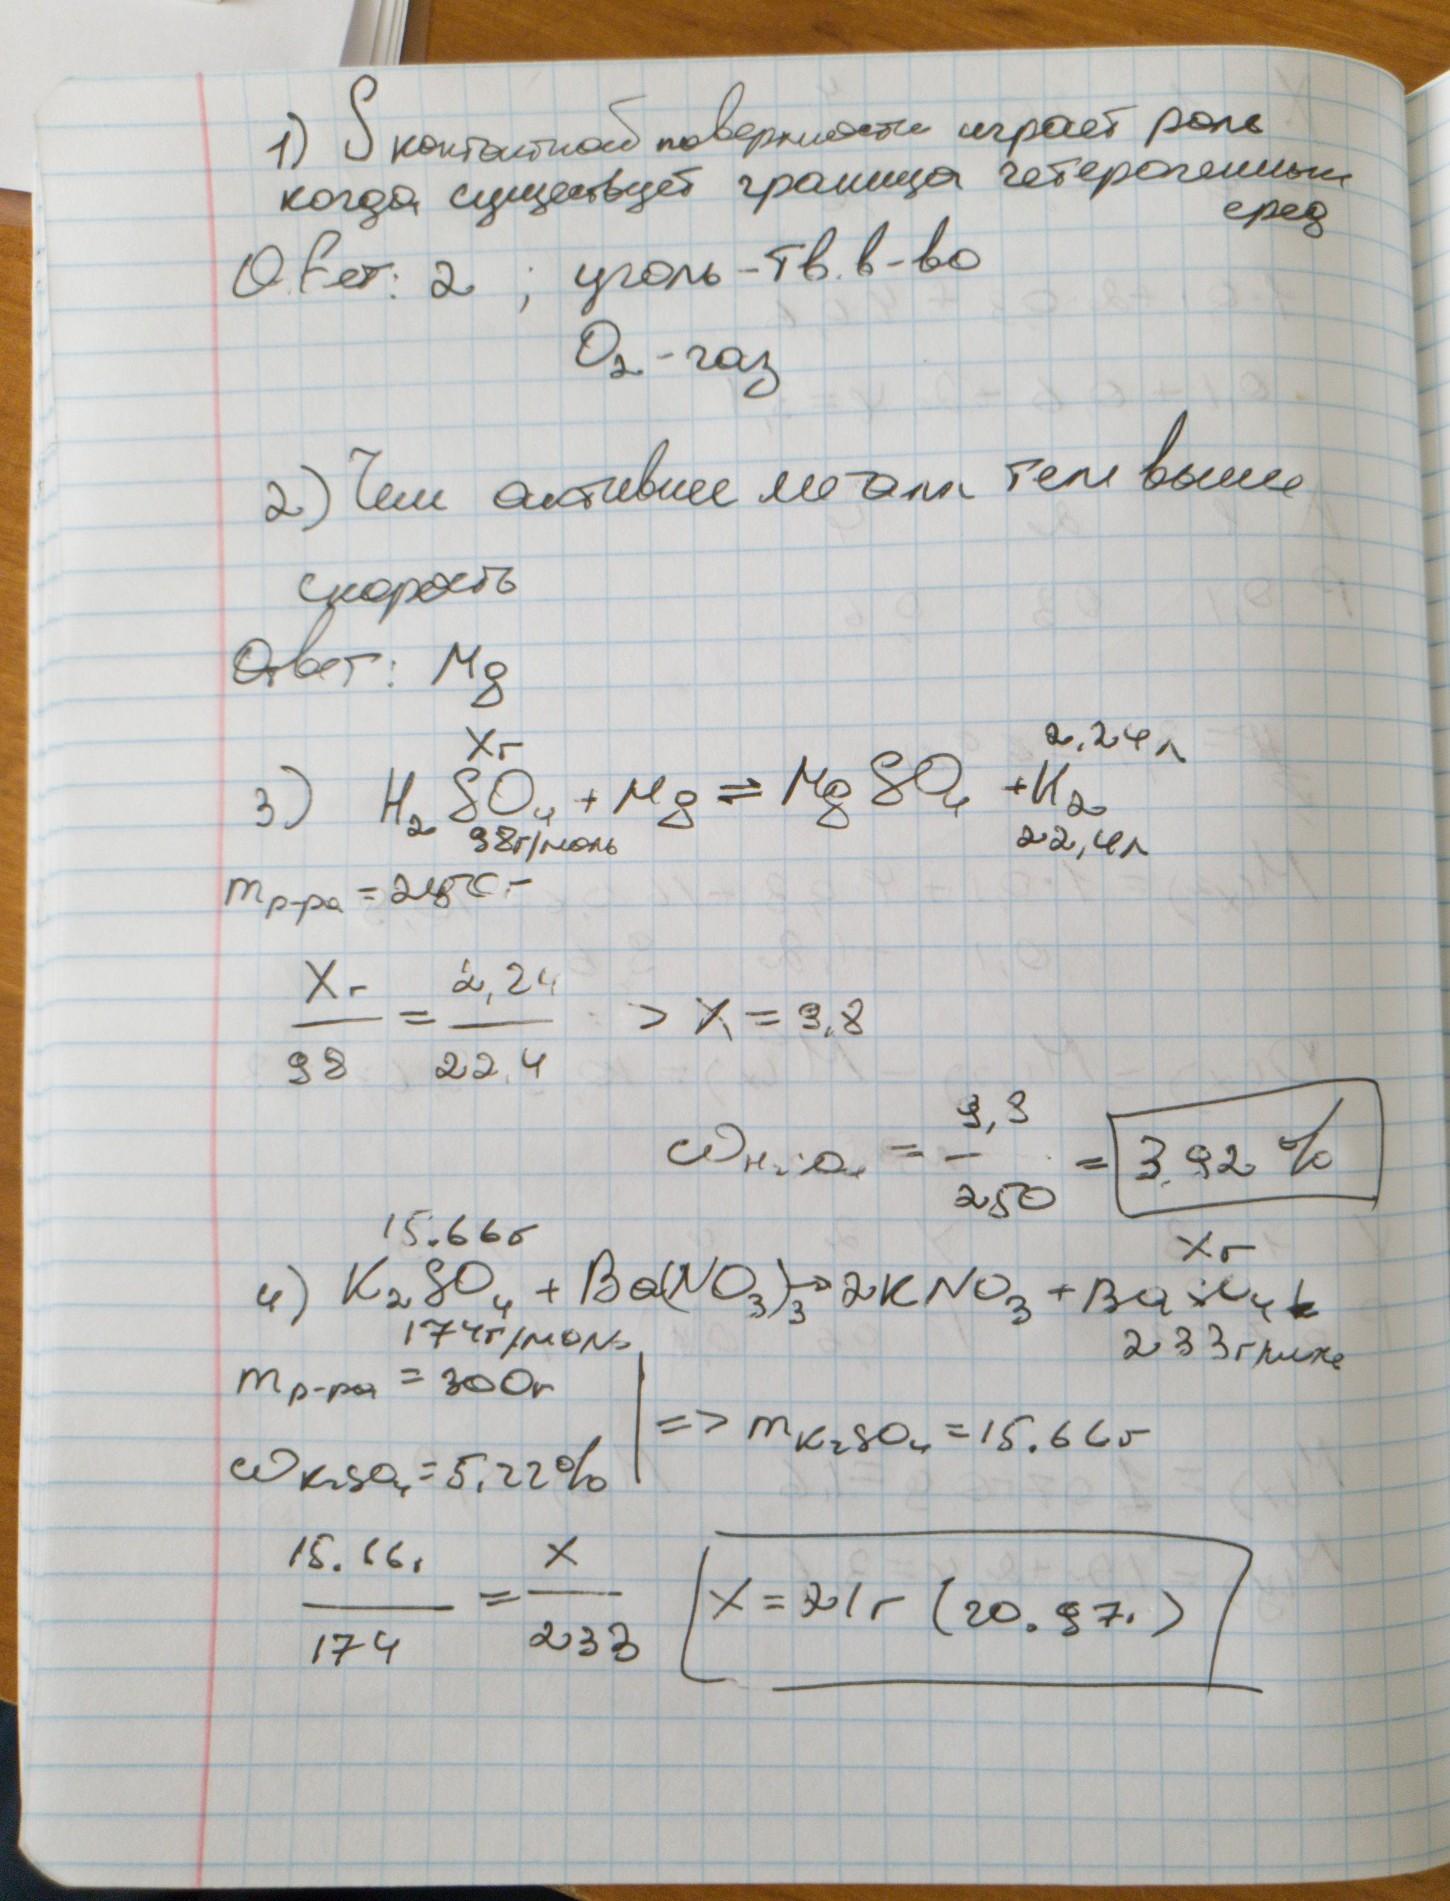 1) S контактной поверхности играет роль
когда существует граница гетерогенных
сред
Ответ: 2 ; уголь - тв. в-во
O₂ - газ
2) Чем активнее металл тем выше
скорость
Ответ: Mg
Xг 2,24л
3) H₂SO₄ + Mg ⇌ MgSO₄ + H₂
98г/моль 22,4л
m р-ра = 250г
Xг/98 = 2,24/22,4 > X = 9,8
ω H₂SO₄ = 9,8/250 = 3,92 %
15.66г Xг
4) K₂SO₄ + Ba(NO₃)₃ → 2KNO₃ + BaSO₄↓
174г/моль 233г/моль
m р-ра = 300г
=> m K₂SO₄ = 15.66г
ω K₂SO₄ = 5,22%
15.66г/174 = X/233
X = 21г (20.97г)